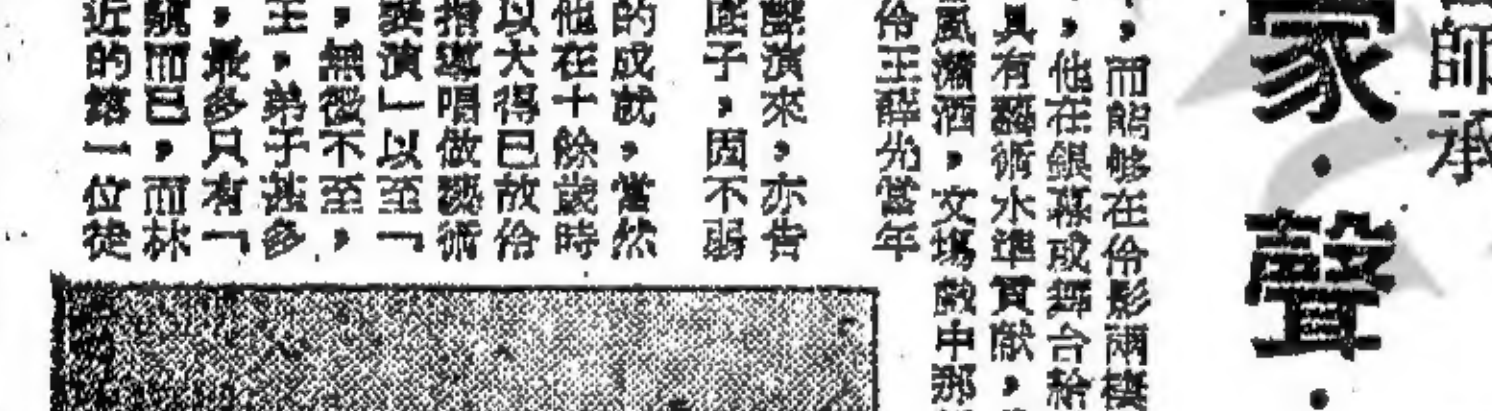 師承
家·聲·
，而能够在伶影兩棲
，他在銀幕或舞台給
具有藝術水準貢獻，
風瀟洒，文場戲中那
伶王薛光當年
演來，亦告
底子，因不弱
的成就，當然
他在十餘歲時
以大得已故伶
指導唱做藝術
」以至「
，無微不至，
王，弟子甚多
，最多只有「
而已，而林
近的第一位徒